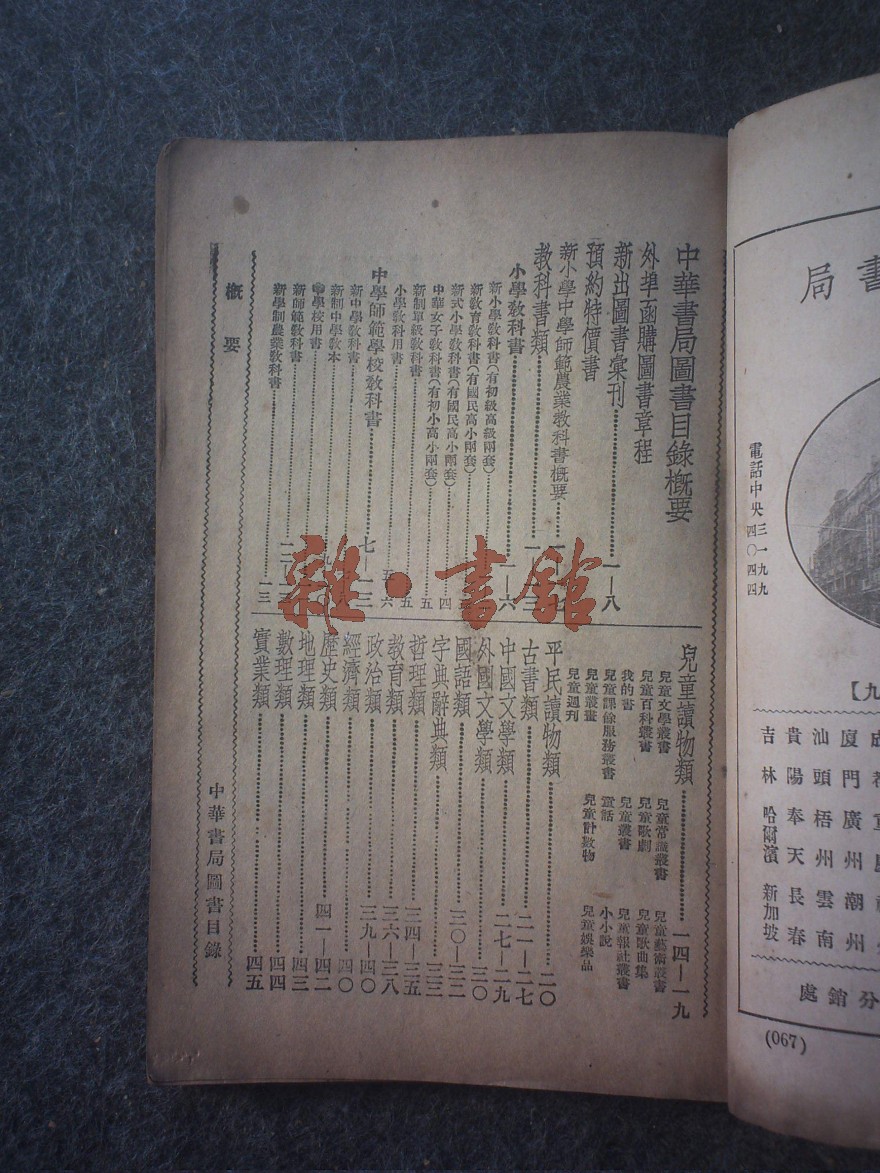 中華書局圖書目錄概要
外埠函購圖書章程
新出圖書彙刊 一—八
預約特價書
新小學中學師範農業教科書概要
教科書類
小學教科書 六
新小學教科書(有初級高級兩套)
新教育教科書(有國民高小兩套)
新式小學教科書(有國民高小兩套) 四
中華女子教科書(有初小高小兩套) 五
新制單級教科書 五
小學教科用書 五 六
中學師範學校教科書 七—一三
新中學教科書
新制中學教本
中學校用書
新師範教科書
新學制農業教科書 一三
兒童讀物類 一四—一九
兒童文學叢書 兒童常識叢書 兒童藝術叢書
兒童百科叢書 兒童歌劇 兒童歌曲集
我的書 兒童叢書 兒童報社叢書
兒童課餘服務叢書 童話 小小說
兒童叢畫 兒童計數物 兒童娛樂品
兒童週刊
平民讀物類 二〇
古書類 二一—二七
中國文學類 二七—二九
外國文學類 三〇
國語類 三〇—三二
字典辭典類 三三
哲理類 三四—三五
教育類 三六—三八
政治類 三九—四〇
經濟類 四〇
歷史類 四一—四二
地理類 四三
數理類 四四
實業類 四五
概要
中華書局圖書目錄
雜·書館
書局
電話中央三一九九 四〇四四
【九
廈門 廣州 潮州
汕頭 梧州 雲南
貴陽 奉天 長春
吉林 哈爾濱 新加坡
分館處
(067)